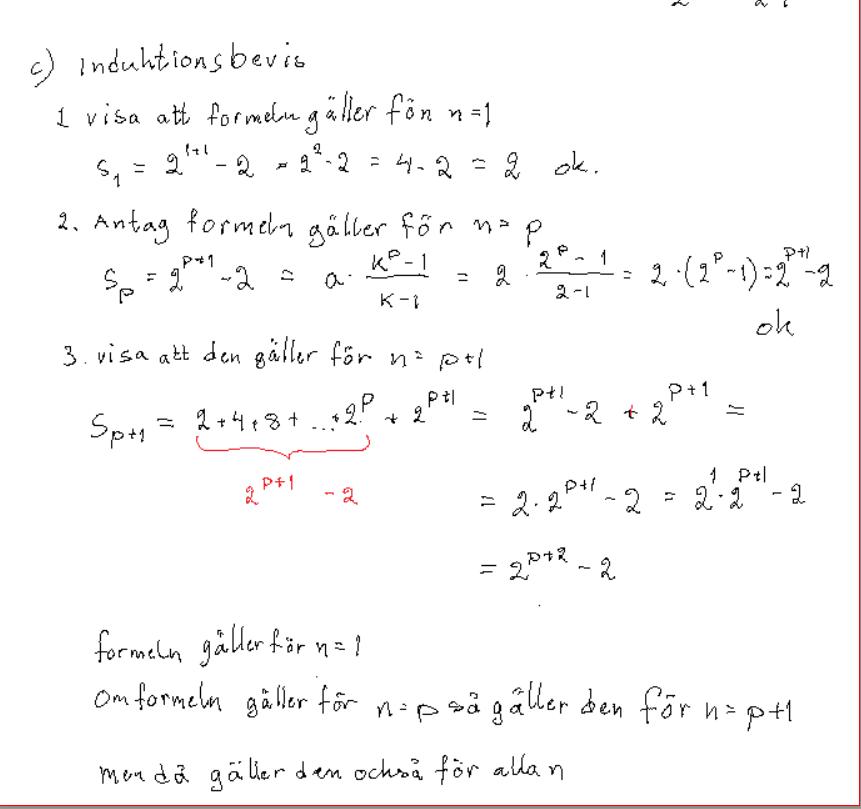 c) Induktionsbevis
1 visa att formeln gäller för n=1
S_1 = 2^{1+1} - 2 = 2^2 - 2 = 4 - 2 = 2 ok.
2. Antag formeln gäller för n = p
S_p = 2^{p+1} - 2 = a · (K^p - 1)/(K - 1) = 2 · (2^p - 1)/(2 - 1) = 2 · (2^p - 1) = 2^{p+1} - 2
ok
3. visa att den gäller för n = p+1
S_{p+1} = 2 + 4 + 8 + ... + 2^p + 2^{p+1} = 2^{p+1} - 2 + 2^{p+1} =
2^{p+1} - 2
= 2 · 2^{p+1} - 2 = 2^1 · 2^{p+1} - 2
= 2^{p+2} - 2
formeln gäller för n = 1
Om formeln gäller för n = p så gäller den för n = p+1
men då gäller den också för alla n